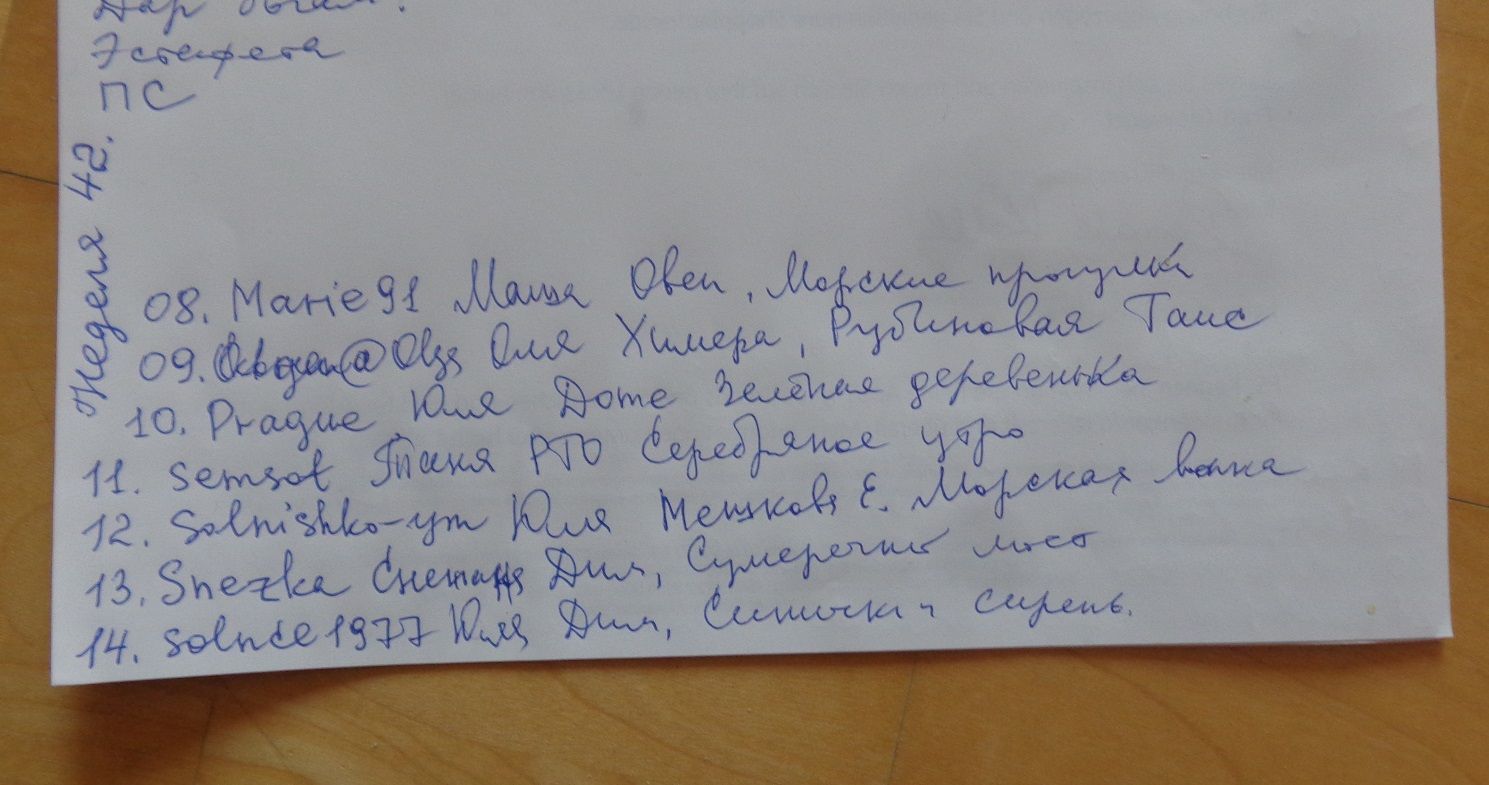 Дар
Эстафета
ПС
Неделя 42.
08. Marie91 Маша Овен, Морские прогулки
09. @Olga Оля Химера, Рубиновая Таис
10. Prague Юля Dome Зелёная деревенька
11. semsot Таня РТО Серебряное утро
12. Solnishko-ym Юля Мешкова Е. Морская волна
13. Snezka Снежана Дим, Сумеречный мост
14. solnce1977 Юля Дим, Синички и сирень.